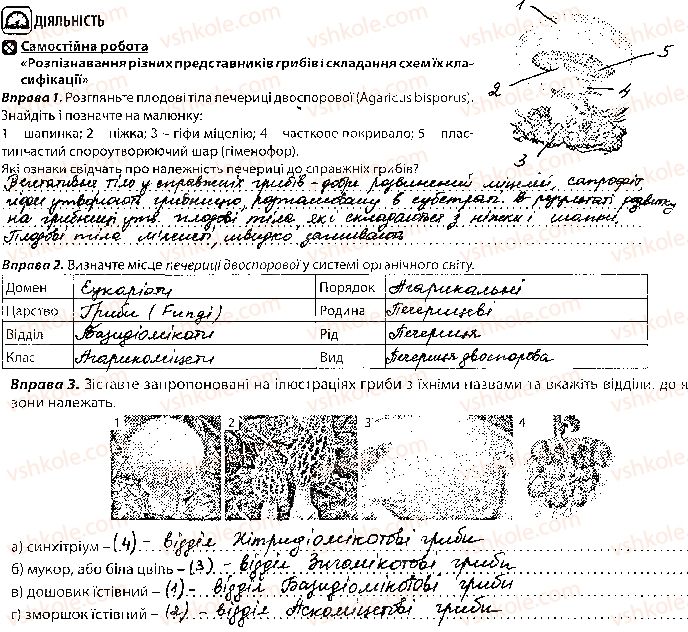 ДІЯЛЬНІСТЬ
Самостійна робота
«Розпізнавання різних представників грибів і складання схем їх кла-
сифікації»
Вправа 1. Розгляньте плодові тіла печериці двоспорової (Agaricus bisporus).
Знайдіть і позначте на малюнку:
1 шапинка; 2 ніжка; 3 – гіфи міцелію; 4 часткове покривало; 5 плас-
тинчастий спороутворюючий шар (гіменофор).
Які ознаки свідчать про належність печериці до справжніх грибів?
Вегетативне тіло у справжніх грибів – добре розвинений міцелій, сапрофіт,
гіфи утворюють грибницю, розташовану в субстраті. В результаті розвитку
на грибниці утв. плодові тіла, які складаються з ніжки і шапки.
Плодові тіла м'ясисті, швидко загнивають
1
2
3
4
5
Вправа 2. Визначте місце печериці двоспорової у системі органічного світу.
Домен Еукаріоти Порядок Агарикальні
Царство Гриби (Fungi) Родина Печерицеві
Відділ Базидіомікоти Рід Печериця
Клас Агарикоміцети Вид Печериця двоспорова
Вправа 3. Зіставте запропоновані на ілюстраціях гриби з їхніми назвами та вкажіть відділи, до я
зони належать.
1 2 3 4
а) синхітріум – (4) – відділ Хітридіомікотові гриби
б) мукор, або біла цвіль – (3) – відділ Зигомікотові гриби
в) дощовик їстівний – (1) – відділ Базидіомікотові гриби
г) зморшок їстівний – (2) – відділ Аскоміцетові гриби
vshkole.com